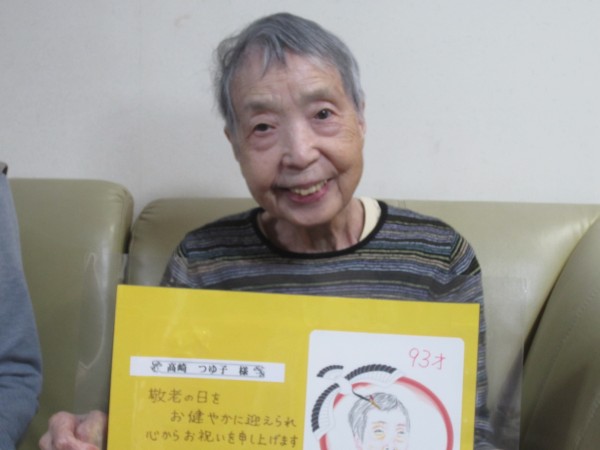 高崎 つゆ子 様
93才
敬老の日を
お健やかに迎えられ
心からお祝いを申し上げます